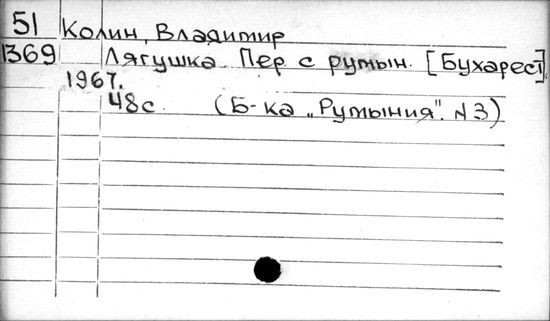 51 Колин, Владимир
1369 Лягушка. Пер. с румын. [Бухарест],
1967.
48с. (Б-ка „Румыния". N3)